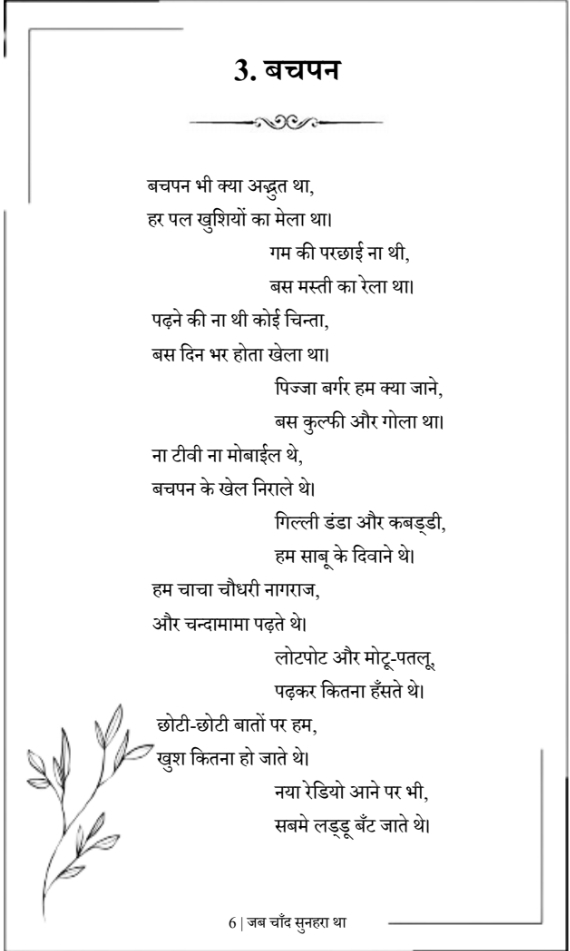 3. बचपन
बचपन भी क्या अद्भुत था,
हर पल खुशियों का मेला था।
गम की परछाई ना थी,
बस मस्ती का रेला था।
पढ़ने की ना थी कोई चिन्ता,
बस दिन भर होता खेला था।
पिज्जा बर्गर हम क्या जाने,
बस कुल्फी और गोला था।
ना टीवी ना मोबाईल थे,
बचपन के खेल निराले थे।
गिल्ली डंडा और कबड्डी,
हम साबू के दिवाने थे।
हम चाचा चौधरी नागराज,
और चन्दामामा पढ़ते थे।
लोटपोट और मोटू-पतलू,
पढ़कर कितना हँसते थे।
छोटी-छोटी बातों पर हम,
खुश कितना हो जाते थे।
नया रेडियो आने पर भी,
सबमे लड्डू बँट जाते थे।
6 | जब चाँद सुनहरा था